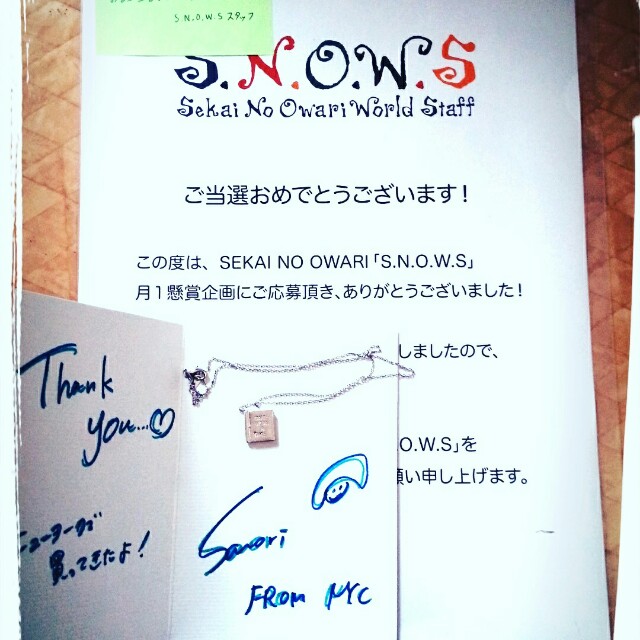 S.N.O.W.Sスタッフ
S.N.O.W.S
Sekai No Owari World Staff
ご当選おめでとうございます！
この度は、SEKAI NO OWARI「S.N.O.W.S」
月1懸賞企画にご応募頂き、ありがとうございました！
しましたので、
.O.W.S」を
願い申し上げます。
Thank
you...♡
ニューヨークで
買ってきたよ！
Saori
FROM NYC